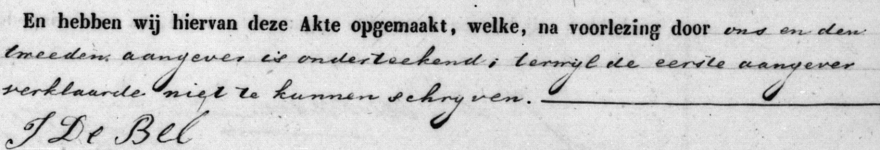 En hebben wij hiervan deze Akte opgemaakt, welke, na voorlezing door ons en den
tweeden aangever is onderteekend; terwyl de eerste aangever
verklaarde niet te kunnen schryven.
J De Bel